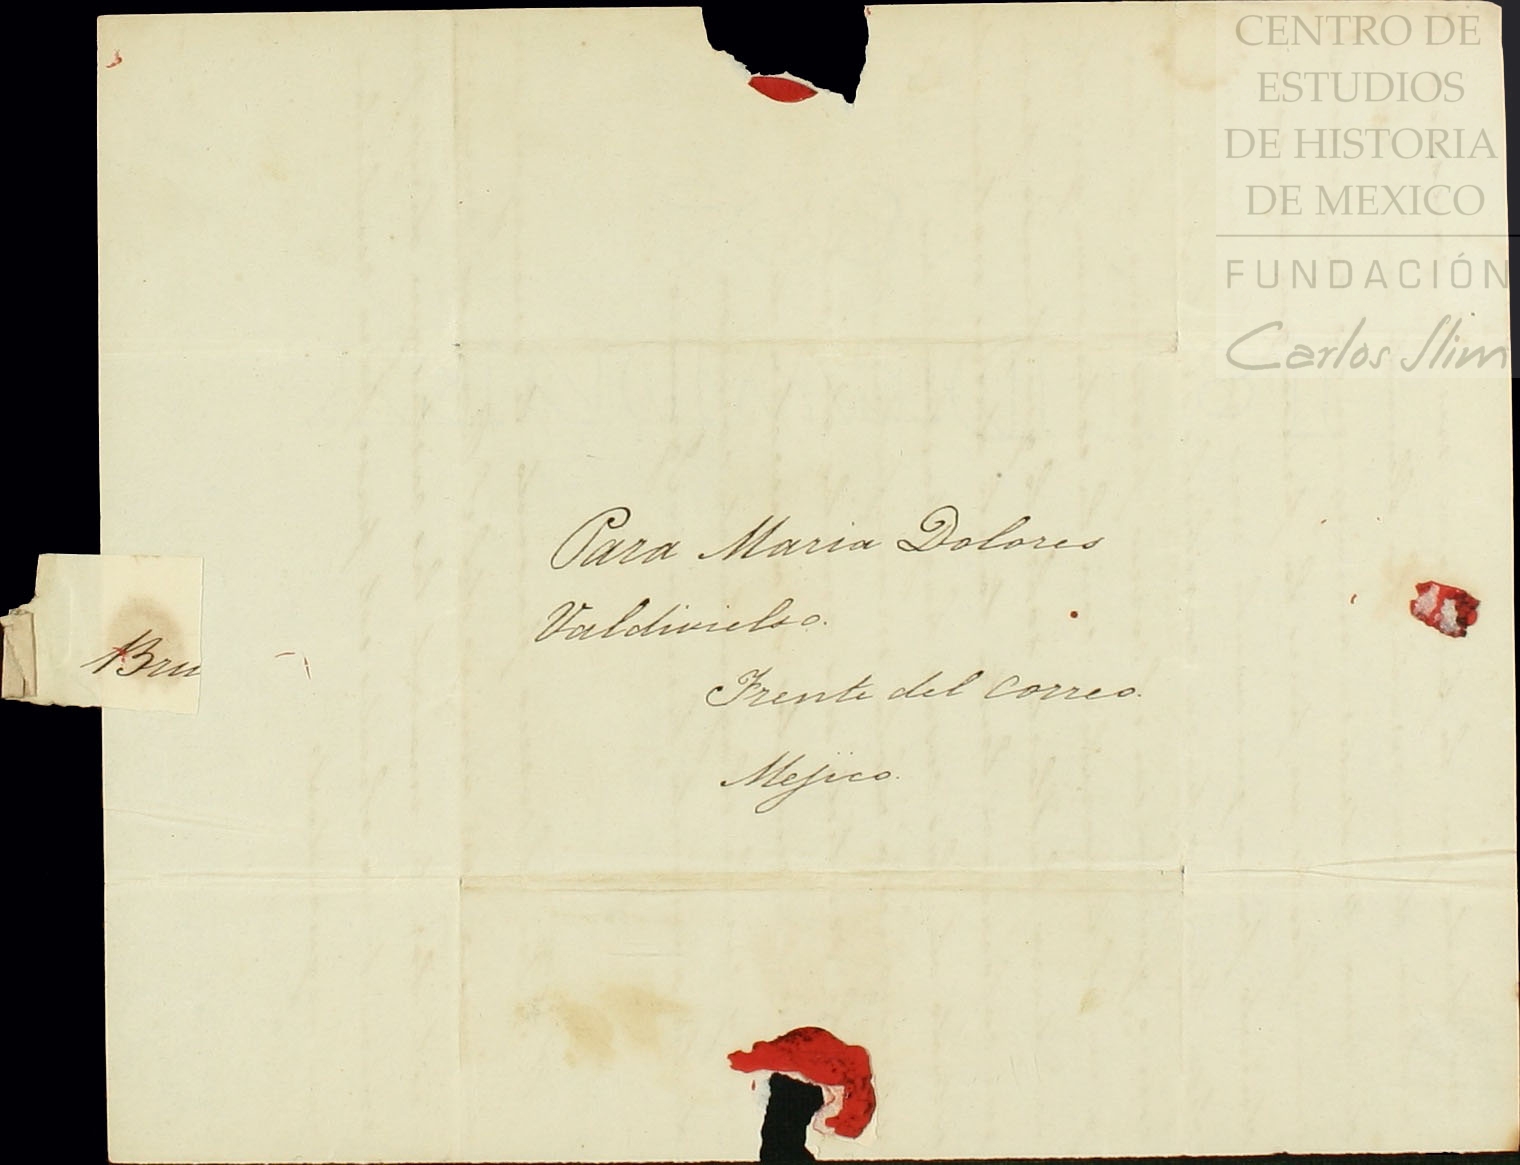 CENTRO DE
ESTUDIOS
DE HISTORIA
DE MEXICO
FUNDACIÓN
Carlos Slim
Para Maria Dolores
Valdivielso.
Bru
Frente del Correo.
Mejico.